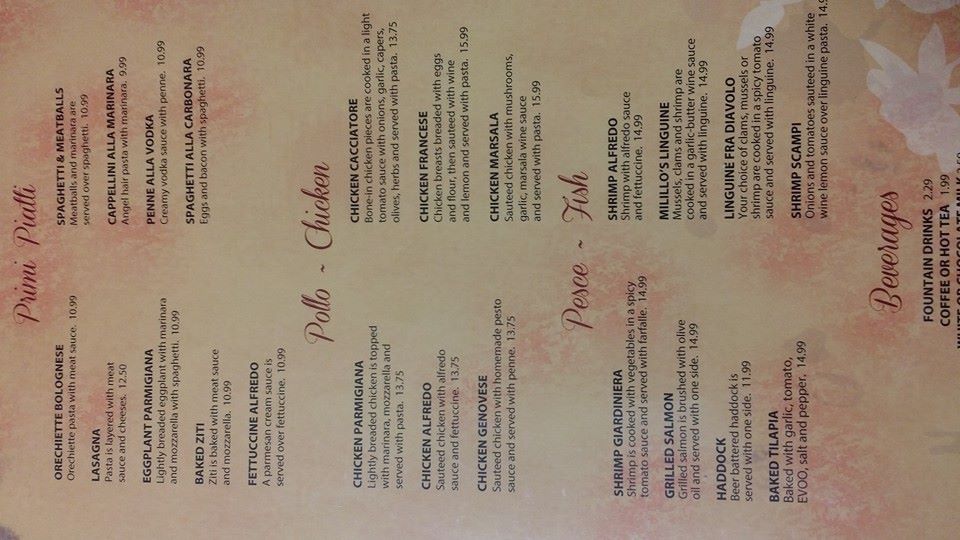 Primi Piatti
ORECHIETTE BOLOGNESE
Orechiette pasta with meat sauce. 10.99
LASAGNA
Pasta is layered with meat
sauce and cheeses. 12.50
EGGPLANT PARMIGIANA
Lightly breaded eggplant with marinara
and mozzarella with spaghetti. 10.99
BAKED ZITI
Ziti is baked with meat sauce
and mozzarella. 10.99
FETTUCCINE ALFREDO
A parmesan cream sauce is
served over fettuccine. 10.99
SPAGHETTI & MEATBALLS
Meatballs and marinara are
served over spaghetti. 10.99
CAPPELINI ALLA MARINARA
Angel hair pasta with marinara. 9.99
PENNE ALLA VODKA
Creamy vodka sauce with penne. 10.99
SPAGHETTI ALLA CARBONARA
Eggs and bacon with spaghetti. 10.99
Pollo ~ Chicken
CHICKEN PARMIGIANA
Lightly breaded chicken is topped
with marinara, mozzarella and
served with pasta. 13.75
CHICKEN ALFREDO
Sauteed chicken with alfredo
sauce and fettuccine. 13.75
CHICKEN GENOVESE
Sauteed chicken with homemade pesto
sauce and served with penne. 13.75
CHICKEN CACCIATORE
Bone-in chicken pieces are cooked in a light
tomato sauce with onions, garlic, capers,
olives, herbs and served with pasta. 13.75
CHICKEN FRANCESE
Chicken breasts breaded with eggs
and flour, then sauteed with wine
and lemon and served with pasta. 15.99
CHICKEN MARSALA
Sauteed chicken with mushrooms,
garlic, marsala wine sauce
and served with pasta. 15.99
Pesce ~ Fish
SHRIMP GIARDINIERA
Shrimp is cooked with vegetables in a spicy
tomato sauce and served with farfalle. 14.99
GRILLED SALMON
Grilled salmon is brushed with olive
oil and served with one side. 14.99
HADDOCK
Beer battered haddock is
served with one side. 11.99
BAKED TILAPIA
Baked with garlic, tomato,
EVOO, salt and pepper. 14.99
SHRIMP ALFREDO
Shrimp with alfredo sauce
and fettuccine. 14.99
MILILLO'S LINGUINE
Mussels, clams and shrimp are
cooked in a garlic-butter wine sauce
and served with linguine. 14.99
LINGUINE FRA DIAVOLO
Your choice of clams, mussels or
shrimp are cooked in a spicy tomato
sauce and served with linguine. 14.99
SHRIMP SCAMPI
Onions and tomatoes sauteed in a white
wine lemon sauce over linguine pasta.
Beverages
FOUNTAIN DRINKS 2.29
COFFEE OR HOT TEA 1.99